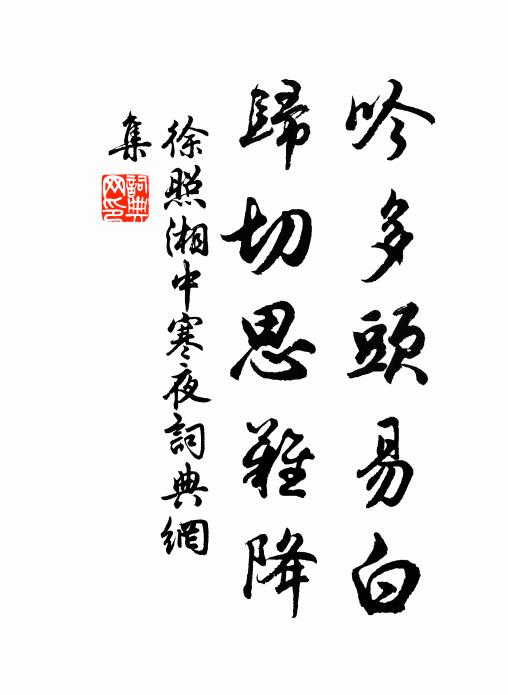 吟多頭易白
歸切思難降
徐照湘中寒夜詞典網
集
詞典
网印